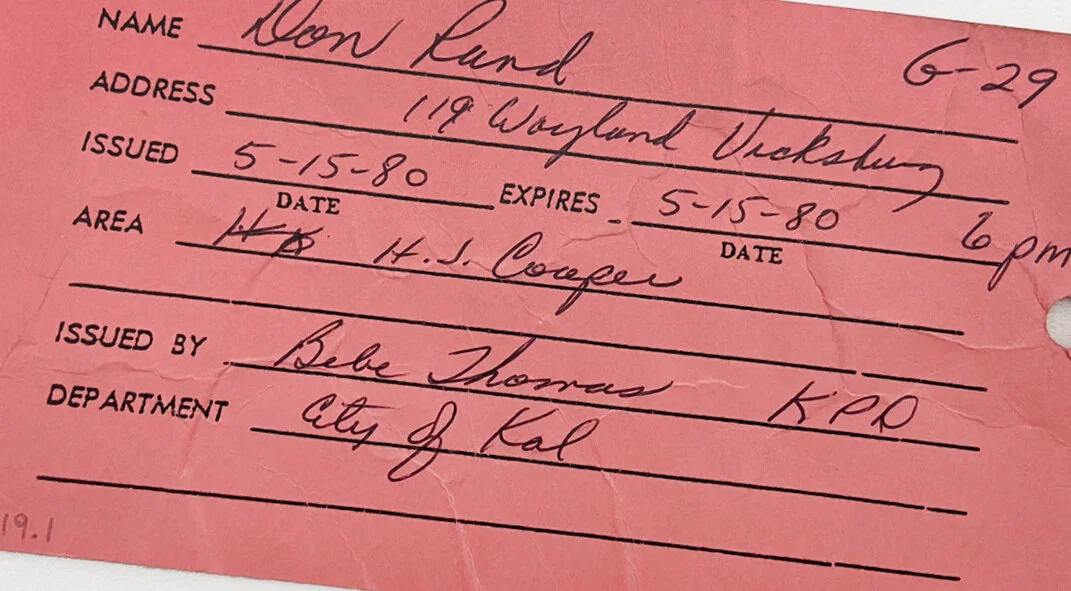 NAME Don Rand G-29
ADDRESS 119 Wayland Vicksburg
ISSUED 5-15-80 EXPIRES 5-15-80 6 pm
DATE DATE
AREA H. J. Cooper
ISSUED BY Bebe Thomas KPD
DEPARTMENT City of Kal
19.1